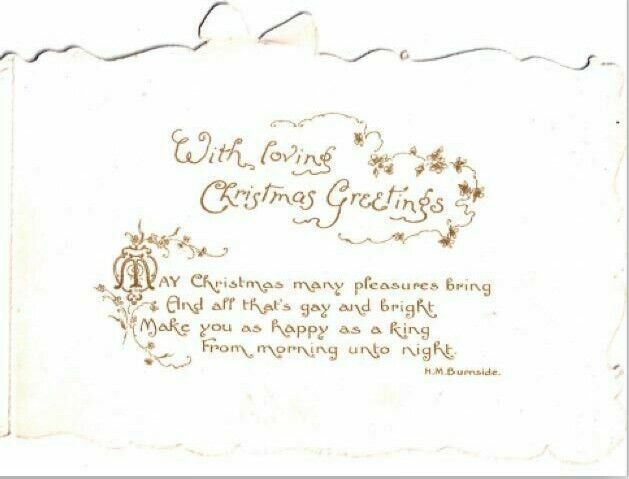 With loving
Christmas Greetings
MAY Christmas many pleasures bring
And all that's gay and bright
Make you as happy as a king
From morning unto night.
H.M.Burnside.